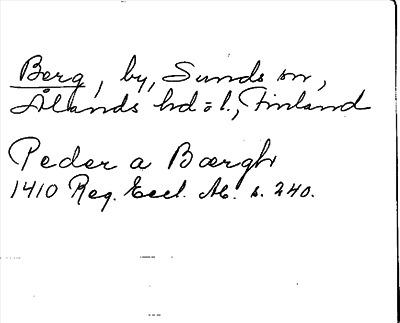 Berg, by, Sunds sn,
Ålands hd = l., Finland
Peder a Bærgh
1410 Reg. Eccl. Ab. s. 240.